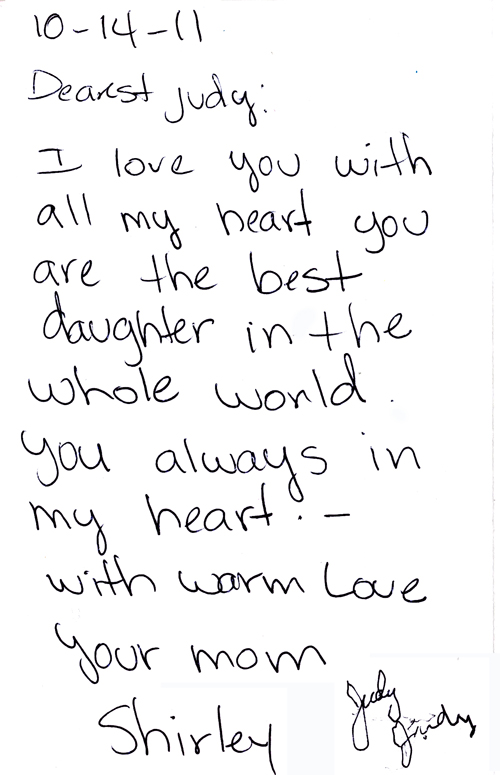 10-14-11
Dearest Judy:
I love you with
all my heart you
are the best
daughter in the
whole world.
you always in
my heart. -
with warm Love
your mom
Shirley
Judy
Judy